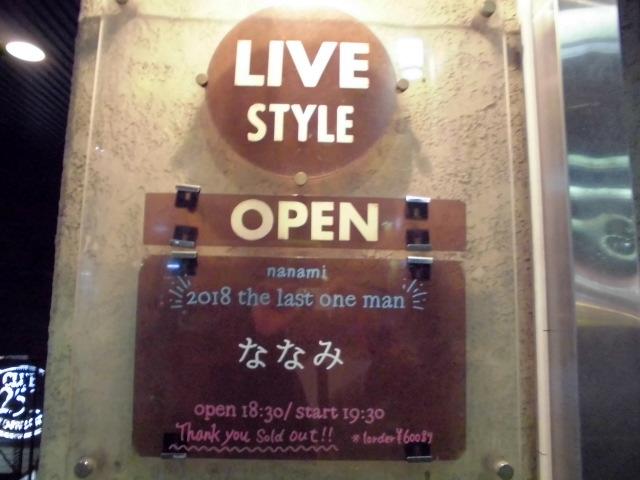 LIVE
STYLE
OPEN
nanami
2018 the last one man
ななみ
open 18:30/ start 19:30
Thank you Sold out!!